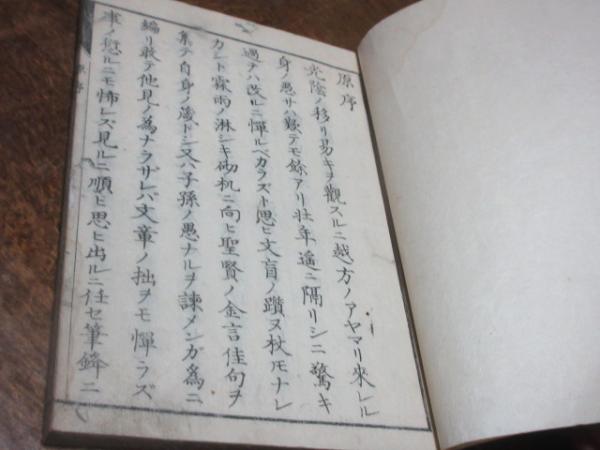 原序
光陰ノ移リ易キヲ觀スルニ越方ノアヤマリ來レル
身ノ愚サハ歎テモ餘アリ壯年遙ニ隔リシニ驚キ
過チハ改ルニ憚ルベカラズト思ヒ文盲ノ躓ヌ杖モナレ
カシト霖雨ノ淋シキ砌机ニ向ヒ聖賢ノ金言佳句ヲ
集テ自身ノ箴トシ又ハ子孫ノ愚ナルヲ諫メンガ爲ニ
編リ敢テ他見ノ為ナラザレバ文章ノ拙ヲモ憚ラズ
事ノ愆ルニモ怖レズ見ルニ順ヒ思ヒ出ルニ任セ筆鋒ニ
原序